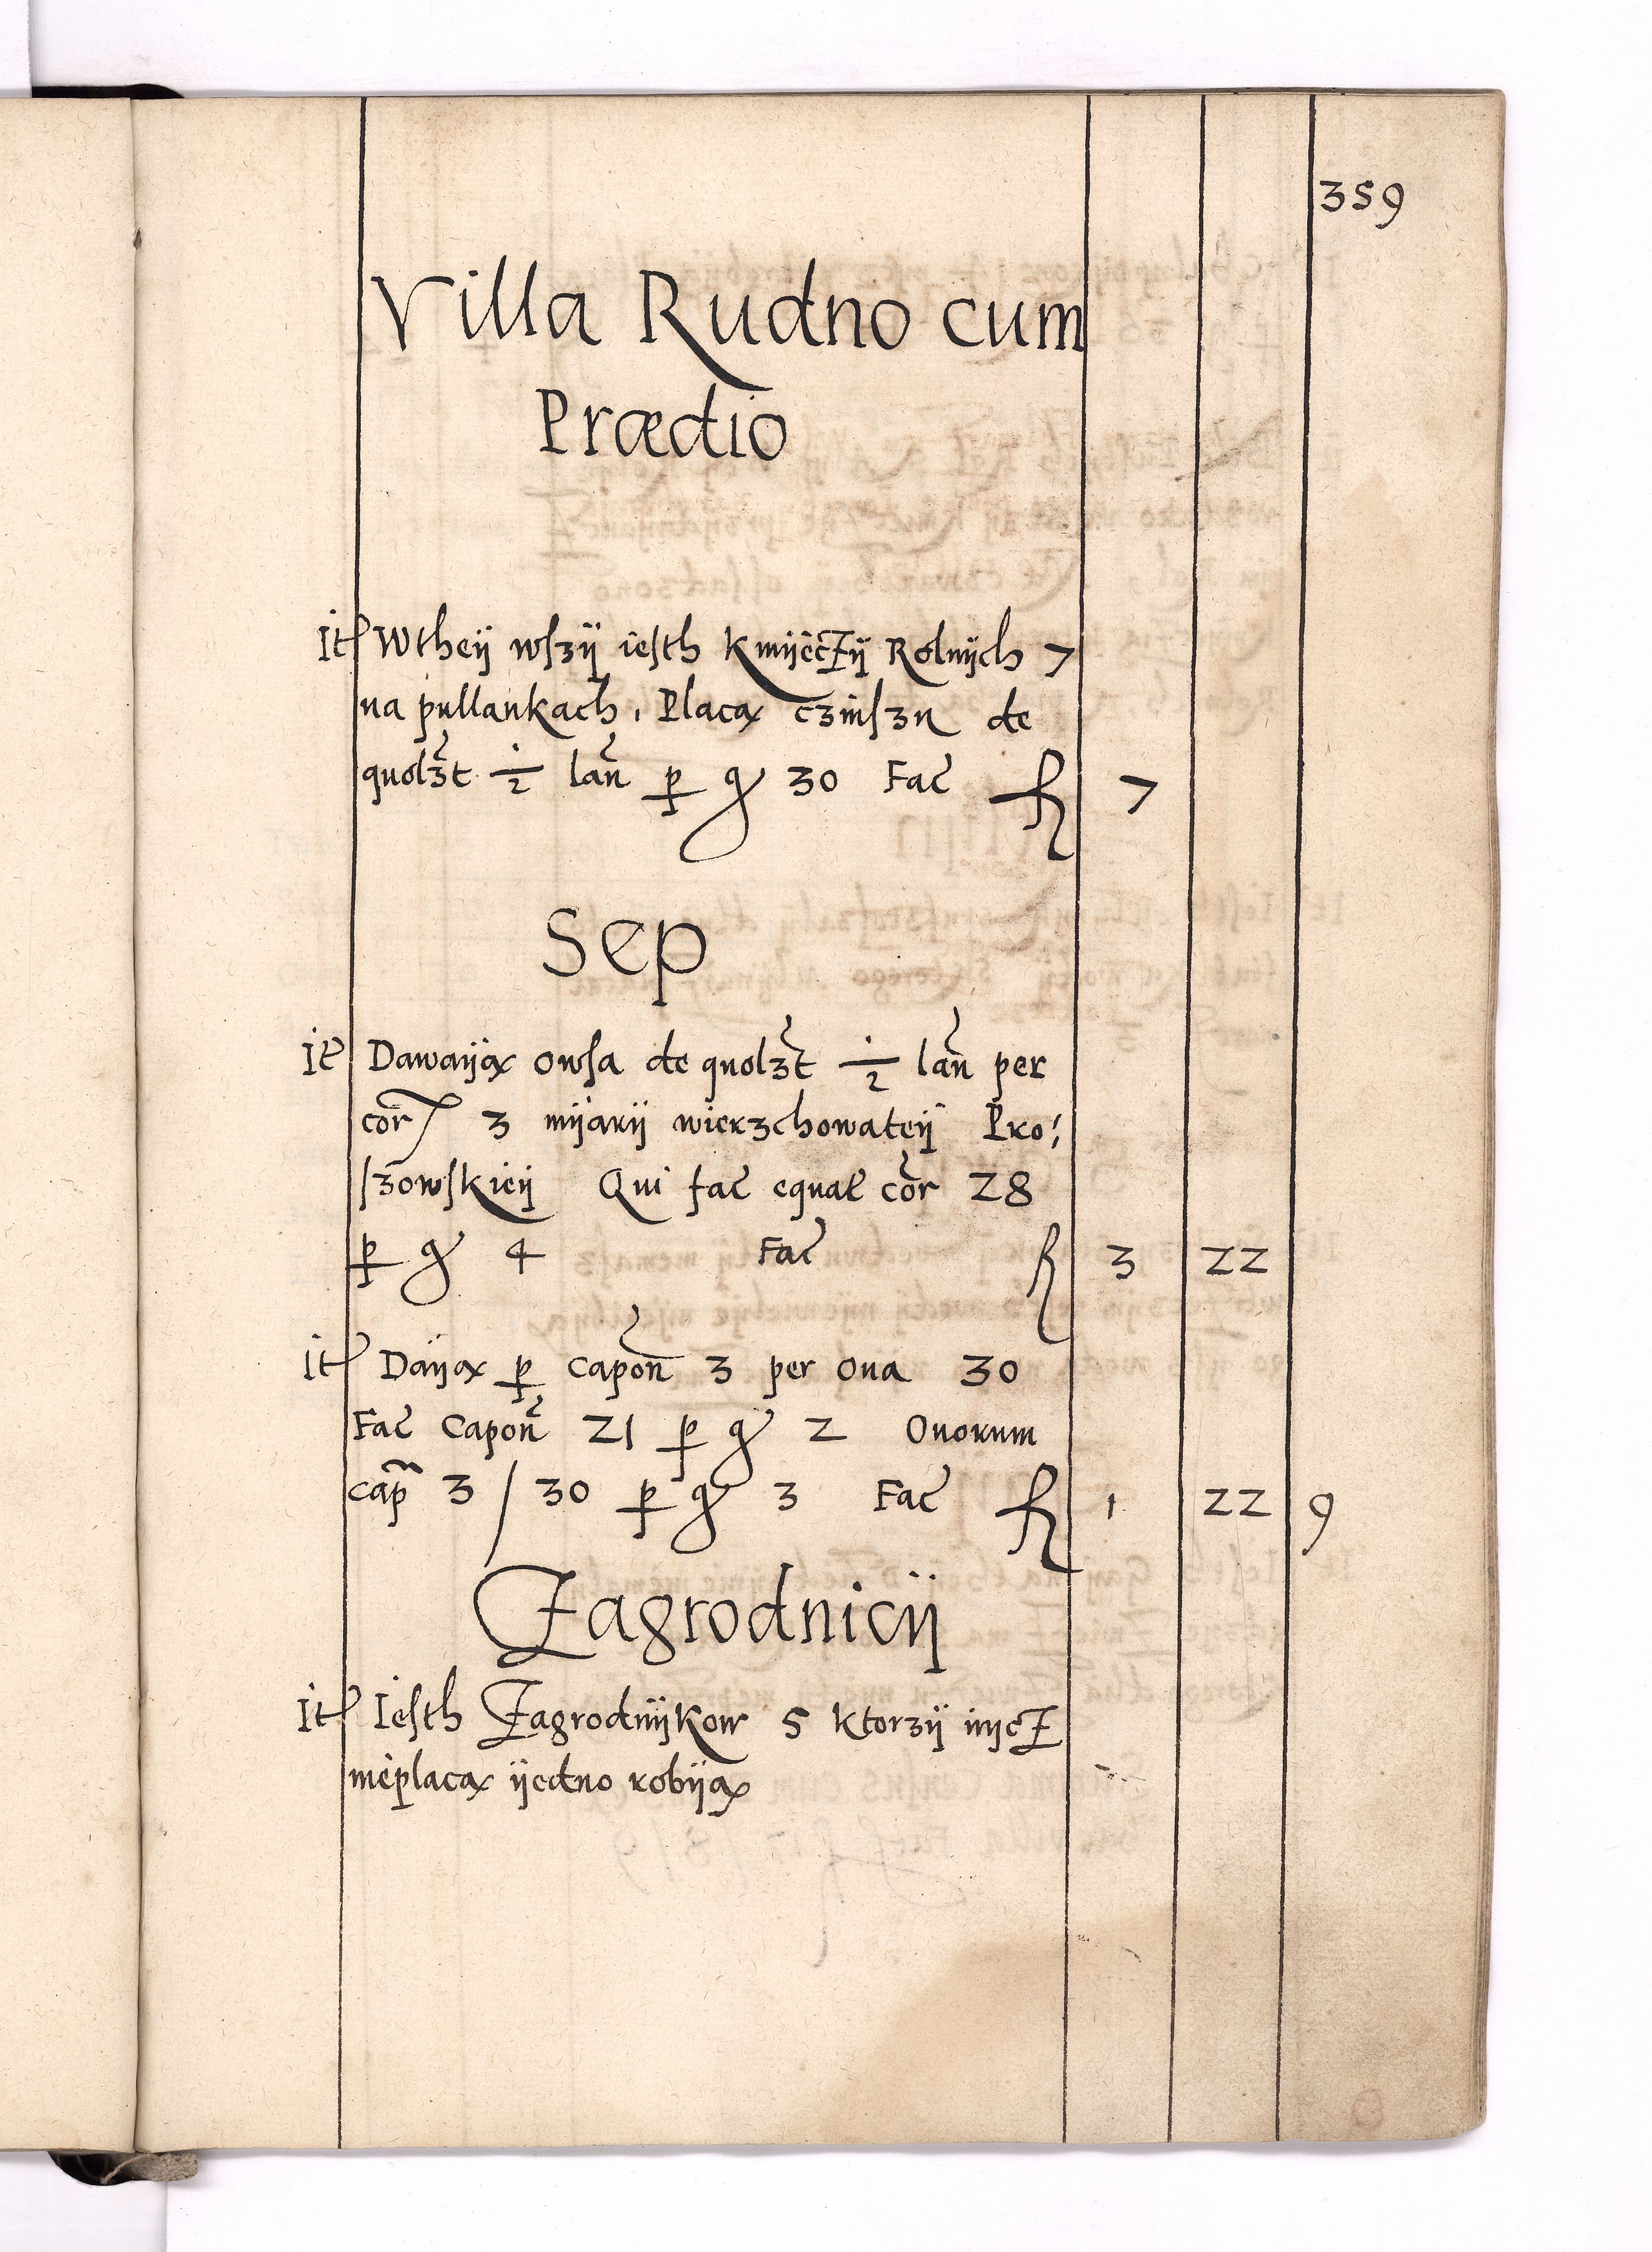 359
Villa Rudno cum
Prædio
It Wtheÿ wſzÿ ieſth KmÿećZÿ Rolnÿch 7
na pullankach, Placą czinſzu de
quolzt ½ lan̄ p g 30 Fac fl 7
Sep
It Dawaÿą owſa de quolzt ½ lan̄ per
cor 3 mÿarÿ wierzchowateÿ Pro:
ſzowſkieÿ Qui fac equal cor 28
p g 4 Fac fl 3 22
It Daÿą p capon̄ 3 per oua 30
Fac Capon̄ 21 p g 2 Ouorum
cap̃ 3 / 30 p g 3 Fac fl 1 22 9
Zagrodnicÿ
It Ieſth ZagrodnÿKow 5 ktorzÿ nÿcZ
nieplacą ÿedno robÿą